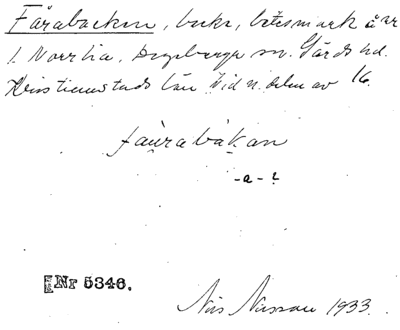 Fårabacken, backe, betesmark å ar
1 Norrlia, Degeberga sn. Gärds hd.
Kristianstads län. Vid n. delen av 16.
fau̯rabàkan
-a- ?
Nr 5346.
Nils Nilsson 1933.